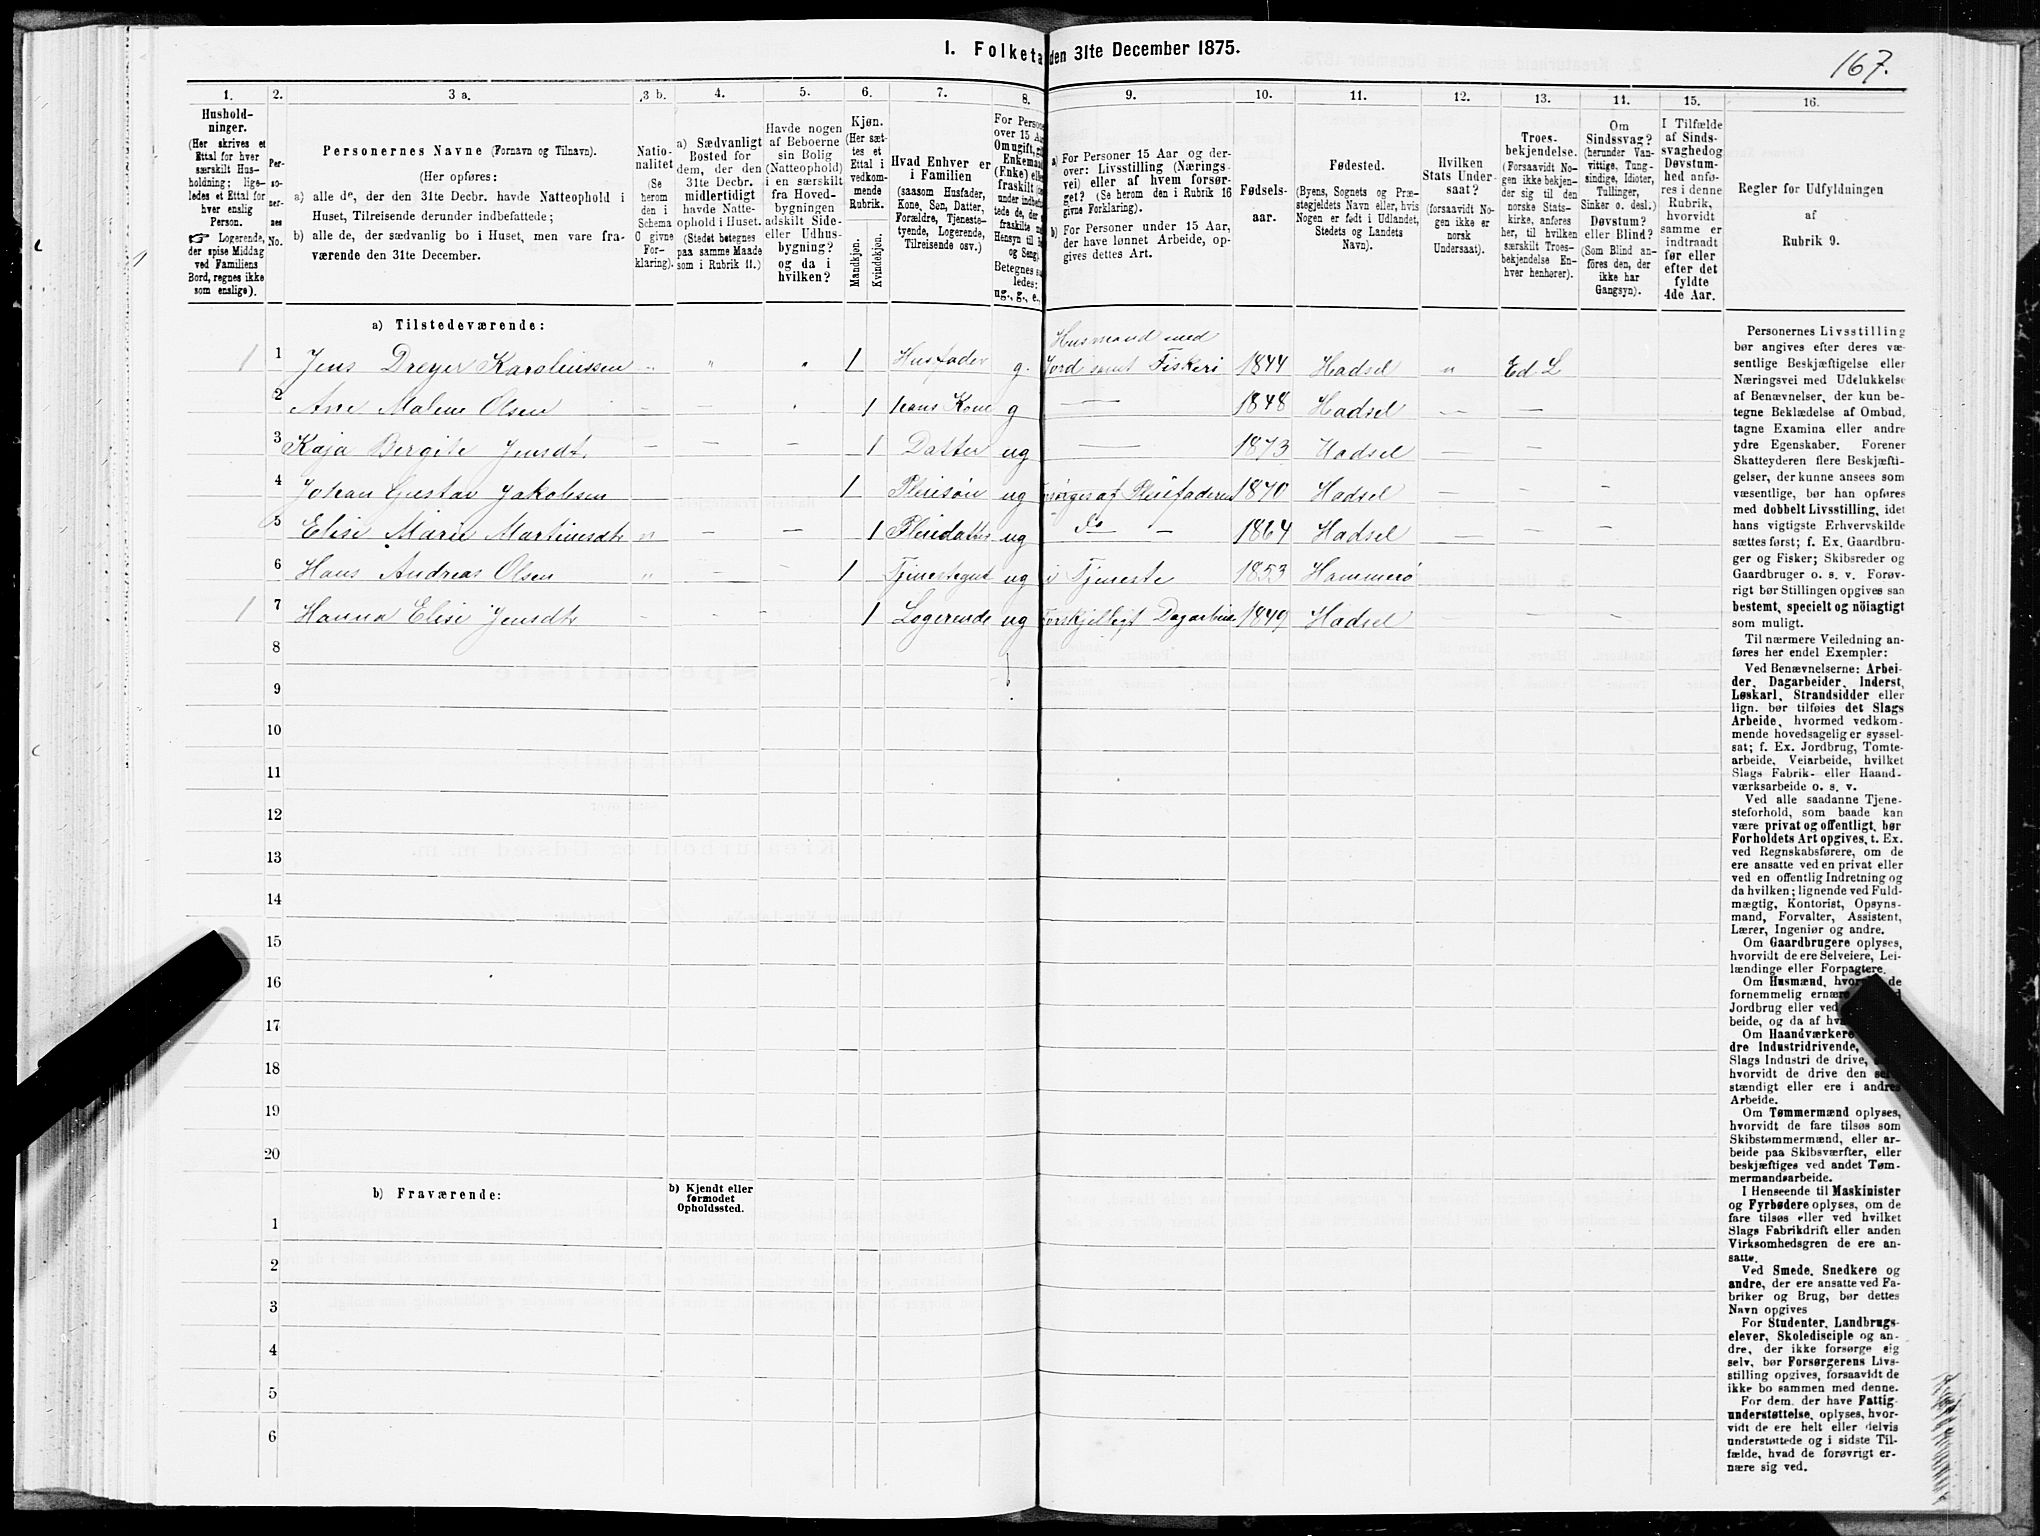 I. Folketa den 31te December 1875.
167.
1.
2.
3 a.
3 b.
4.
5.
6.
7.
8.
9.
10.
11.
12.
13.
14.
15.
16.
Hushold-
ninger.
(Her skrives et
Ettal for hver
særskilt Hus-
holdning; lige-
ledes et Ettal for
hver enslig
Person.
☞ Logerende,
der spise Middag
ved Familiens
Bord, regnes ikke
som enslige).
Per-
so-
ner-
nes
No.
Personernes Navne (Fornavn og Tilnavn).
(Her opføres:
a) alle de, der den 31te Decbr. havde Natteophold i
Huset, Tilreisende derunder indbefattede;
b) alle de, der sædvanlig bo i Huset, men vare fra-
værende den 31te December.
Natio-
nalitet
(Se
herom
den i
Schema
O givne
For-
klaring).
a) Sædvanligt
Bosted for
dem, der den
31te Decbr.
midlertidigt
havde Natte-
ophold i Huset.
(Stedet betegnes
paa samme Maade
som i Rubrik 11.)
Havde nogen
af Beboerne
sin Bolig
(Natteophold)
i en særskilt
fra Hoved-
bygningen
adskilt Side-
eller Udhus-
bygning?
og da i
hvilken?
Kjøn.
(Her sæt-
tes et
Ettal i
vedkom-
mende
Rubrik.
Mandkjøn.
Kvindekjøn.
Hvad Enhver er
i Familien
(saasom Husfader,
Kone, Søn, Datter,
Forældre, Tjeneste-
tyende, Logerende,
Tilreisende osv.)
For Persone
over 15 Aa
Om ugift, gi
Enkemand
(Enke) elle
fraskilt (de
under indbefat-
tede de, der e
fraskilte m
Hensyn til B
og Seng)
Betegnes sa
ledes:
ug., g., e.,
a) For Personer 15 Aar og der-
over: Livsstilling (Nærings-
vei) eller af hvem forsør-
get? (Se herom den i Rubrik 16
givne Forklaring).
b) For Personer under 15 Aar,
der have lønnet Arbeide, op-
gives dettes Art.
Fødsels-
aar.
Fødested.
(Byens, Sognets og Præ-
stegjeldets Navn eller, hvis
Nogen er født i Udlandet,
Stedets og Landets
Navn).
Hvilken
Stats Under-
saat?
(forsaavidt No-
gen ikke er
norsk
Undersaat).
Troes-
bekjendelse.
(Forsaavidt No-
gen ikke bekjen-
der sig til den
norske Stats-
kirke, anføres
her, til hvilken
særskilt Troes-
bekjendelse En-
hver henhører).
Om
Sindssvag?
(herunder Van-
vittige, Tung-
sindige, Idioter,
Tullinger,
Sinker o. desl.)
Døvstum?
eller Blind?
(Som Blind an-
føres den, der
ikke har
Gangsyn).
I Tilfælde
af Sinds-
svaghed og
Døvstum-
hed anfø-
res i denne
Rubrik,
hvorvidt
samme er
indtraadt
før eller
efter det
fyldte
4de Aar.
Regler for Udfyldningen
af
Rubrik 9.
a) Tilstedeværende:
Husmand med
1 1 Jens Dreyer Karolinssen " " " 1 Husfader g. Jord samt Fiskeri 1844 Hadsel " Ed L
2 Ane Malene Olsen – – 1 hans Kone g — 1848 Hadsel — —
3 Kaja Bergite Jensdt. — — — 1 Datter ug — 1873 Hadsel — —
4 Johan Gustav Jakobsen 1 Pleisøn ug Forsørges af Pleiefaderen 1870 Hadsel — —
5 Elise Marie Martinsdt " — — 1 Pleiedatter ug Do — 1864 Hadsel — —
6 Hans Andreas Olsen " — — 1 Tjenestegut ug i Tjeneste 1853 Hammerø — —
1 7 Hanna Elise Jensdt – – – 1 Logerende ug Forskjelligt Dagarbeide 1849 Hadsel — —
8
9
10
11
12
13
14
15
16
17
18
19
20
b) Fraværende:
b) Kjendt eller
formodet
Opholdssted.
1
2
3
4
5
6
Personernes Livsstilling
bør angives efter deres væ-
sentlige Beskjæftigelse eller
Næringsvei med Udelukkelse
af Benævnelser, der kun be-
tegne Beklædelse af Ombud,
tagne Examina eller andre
ydre Egenskaber. Forener
Skatteyderen flere Beskjæfti-
gelser, der kunne ansees som
væsentlige, bør han opføres
med dobbelt Livsstilling, idet
hans vigtigste Erhvervskilde
sættes først; f. Ex. Gaardbru-
ger og Fisker; Skibsreder og
Gaardbruger o. s. v. Forøv-
rigt bør Stillingen opgives saa
bestemt, specielt og nöiagtigt
som muligt.
Til nærmere Veiledning an-
føres her endel Exempler:
Ved Benævnelserne: Arbei-
der, Dagarbeider, Inderst,
Løskarl, Strandsidder eller
lign. bør tilføies det Slags
Arbeide, hvormed vedkom-
mende hovedsagelig er syssel-
sat; f. Ex. Jordbrug, Tomte-
arbeide, Veiarbeide, hvilket
Slags Fabrik- eller Haand-
værksarbeide o. s. v.
Ved alle saadanne Tjene-
steforhold, som baade kan
være privat og offentligt, bør
Forholdets Art opgives, t. Ex.
ved Regnskabsførere, om de
ere ansatte ved en privat eller
ved en offentlig Indretning og
da hvilken; lignende ved Fuld-
mægtig, Kontorist, Opsyns-
mand, Forvalter, Assistent,
Lærer, Ingeniør og andre.
Om Gaardbrugere oplyses,
hvorvidt de ere Selveiere, Lei-
lændinge eller Forpagtere.
Om Husmænd, hvor de
fornemmelig ernære
Jordbrug eller ved
beide, og da af hv
Om Haandværkere
dre Industridrivende,
Slags Industri de drive,
hvorvidt de drive den sel
stændigt eller ere i andres
Arbeide.
Om Tømmermænd oplyses,
hvorvidt de fare tilsøs som
Skibstømmermænd, eller ar-
beide paa Skibsværfter, eller
beskjæftiges ved andet Tøm-
mermandsarbeide.
I Henseende til Maskinister
og Fyrbødere oplyses, om de
fare tilsøs eller ved hvilket
Slags Fabrikdrift eller anden
Virksomhedsgren de ere an-
satte.
Ved Smede, Snedkere og
andre, der ere ansatte ved Fa-
briker og Brug, bør dettes
Navn opgives
For Studenter, Landbrugs-
elever, Skoledisciple og an-
dre, der ikke forsørge sig
selv, bør Forsørgerens Livs-
stilling opgives, forsaavidt de
ikke bo sammen med denne.
For dem, der have Fattig-
understøttelse, oplyses, hvor-
vidt de ere helt eller delvis
understøttede og i sidste Til-
fælde, hvad de forøvrigt er-
nære sig ved.